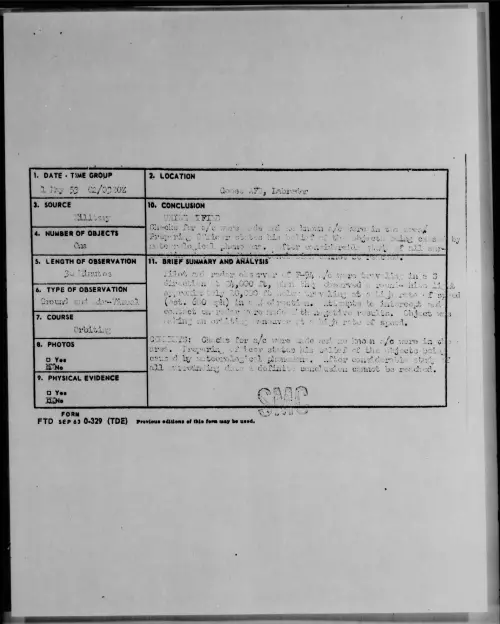 1. DATE - TIME GROUP
2. LOCATION
1 May 53 02/0320Z
Goose AFB, Labrador
3. SOURCE
10. CONCLUSION
Military
UNIDENTIFIED
Checks for a/c were made and no known a/c were in the area.
Preparing Officer states his belief of the objects being caused by
meteorological phenomena. After considerable study of all sur-
4. NUMBER OF OBJECTS
One
5. LENGTH OF OBSERVATION
11. BRIEF SUMMARY AND ANALYSIS
30 Minutes
Pilot and radar observer of F-94 a/c were traveling in a S
direction 24,000 ft,
6. TYPE OF OBSERVATION
Ground and Air-Visual
direction. Attempts to intercept and
contact on radar were made with negative results. Object was
making an orbiting maneuver at a high rate of speed.
7. COURSE
Orbiting
8. PHOTOS
□ Yes
No
COMMENTS: Checks for a/c were made and no known a/c were in the
area. Preparing officer states his belief of the objects being
caused by meteorological phenomena. After considerable study of
all surrounding data a definite conclusion cannot be reached.
9. PHYSICAL EVIDENCE
□ Yes
No
SMC
FORM
FTD SEP 63 0-329 (TDE) Previous editions of this form may be used.